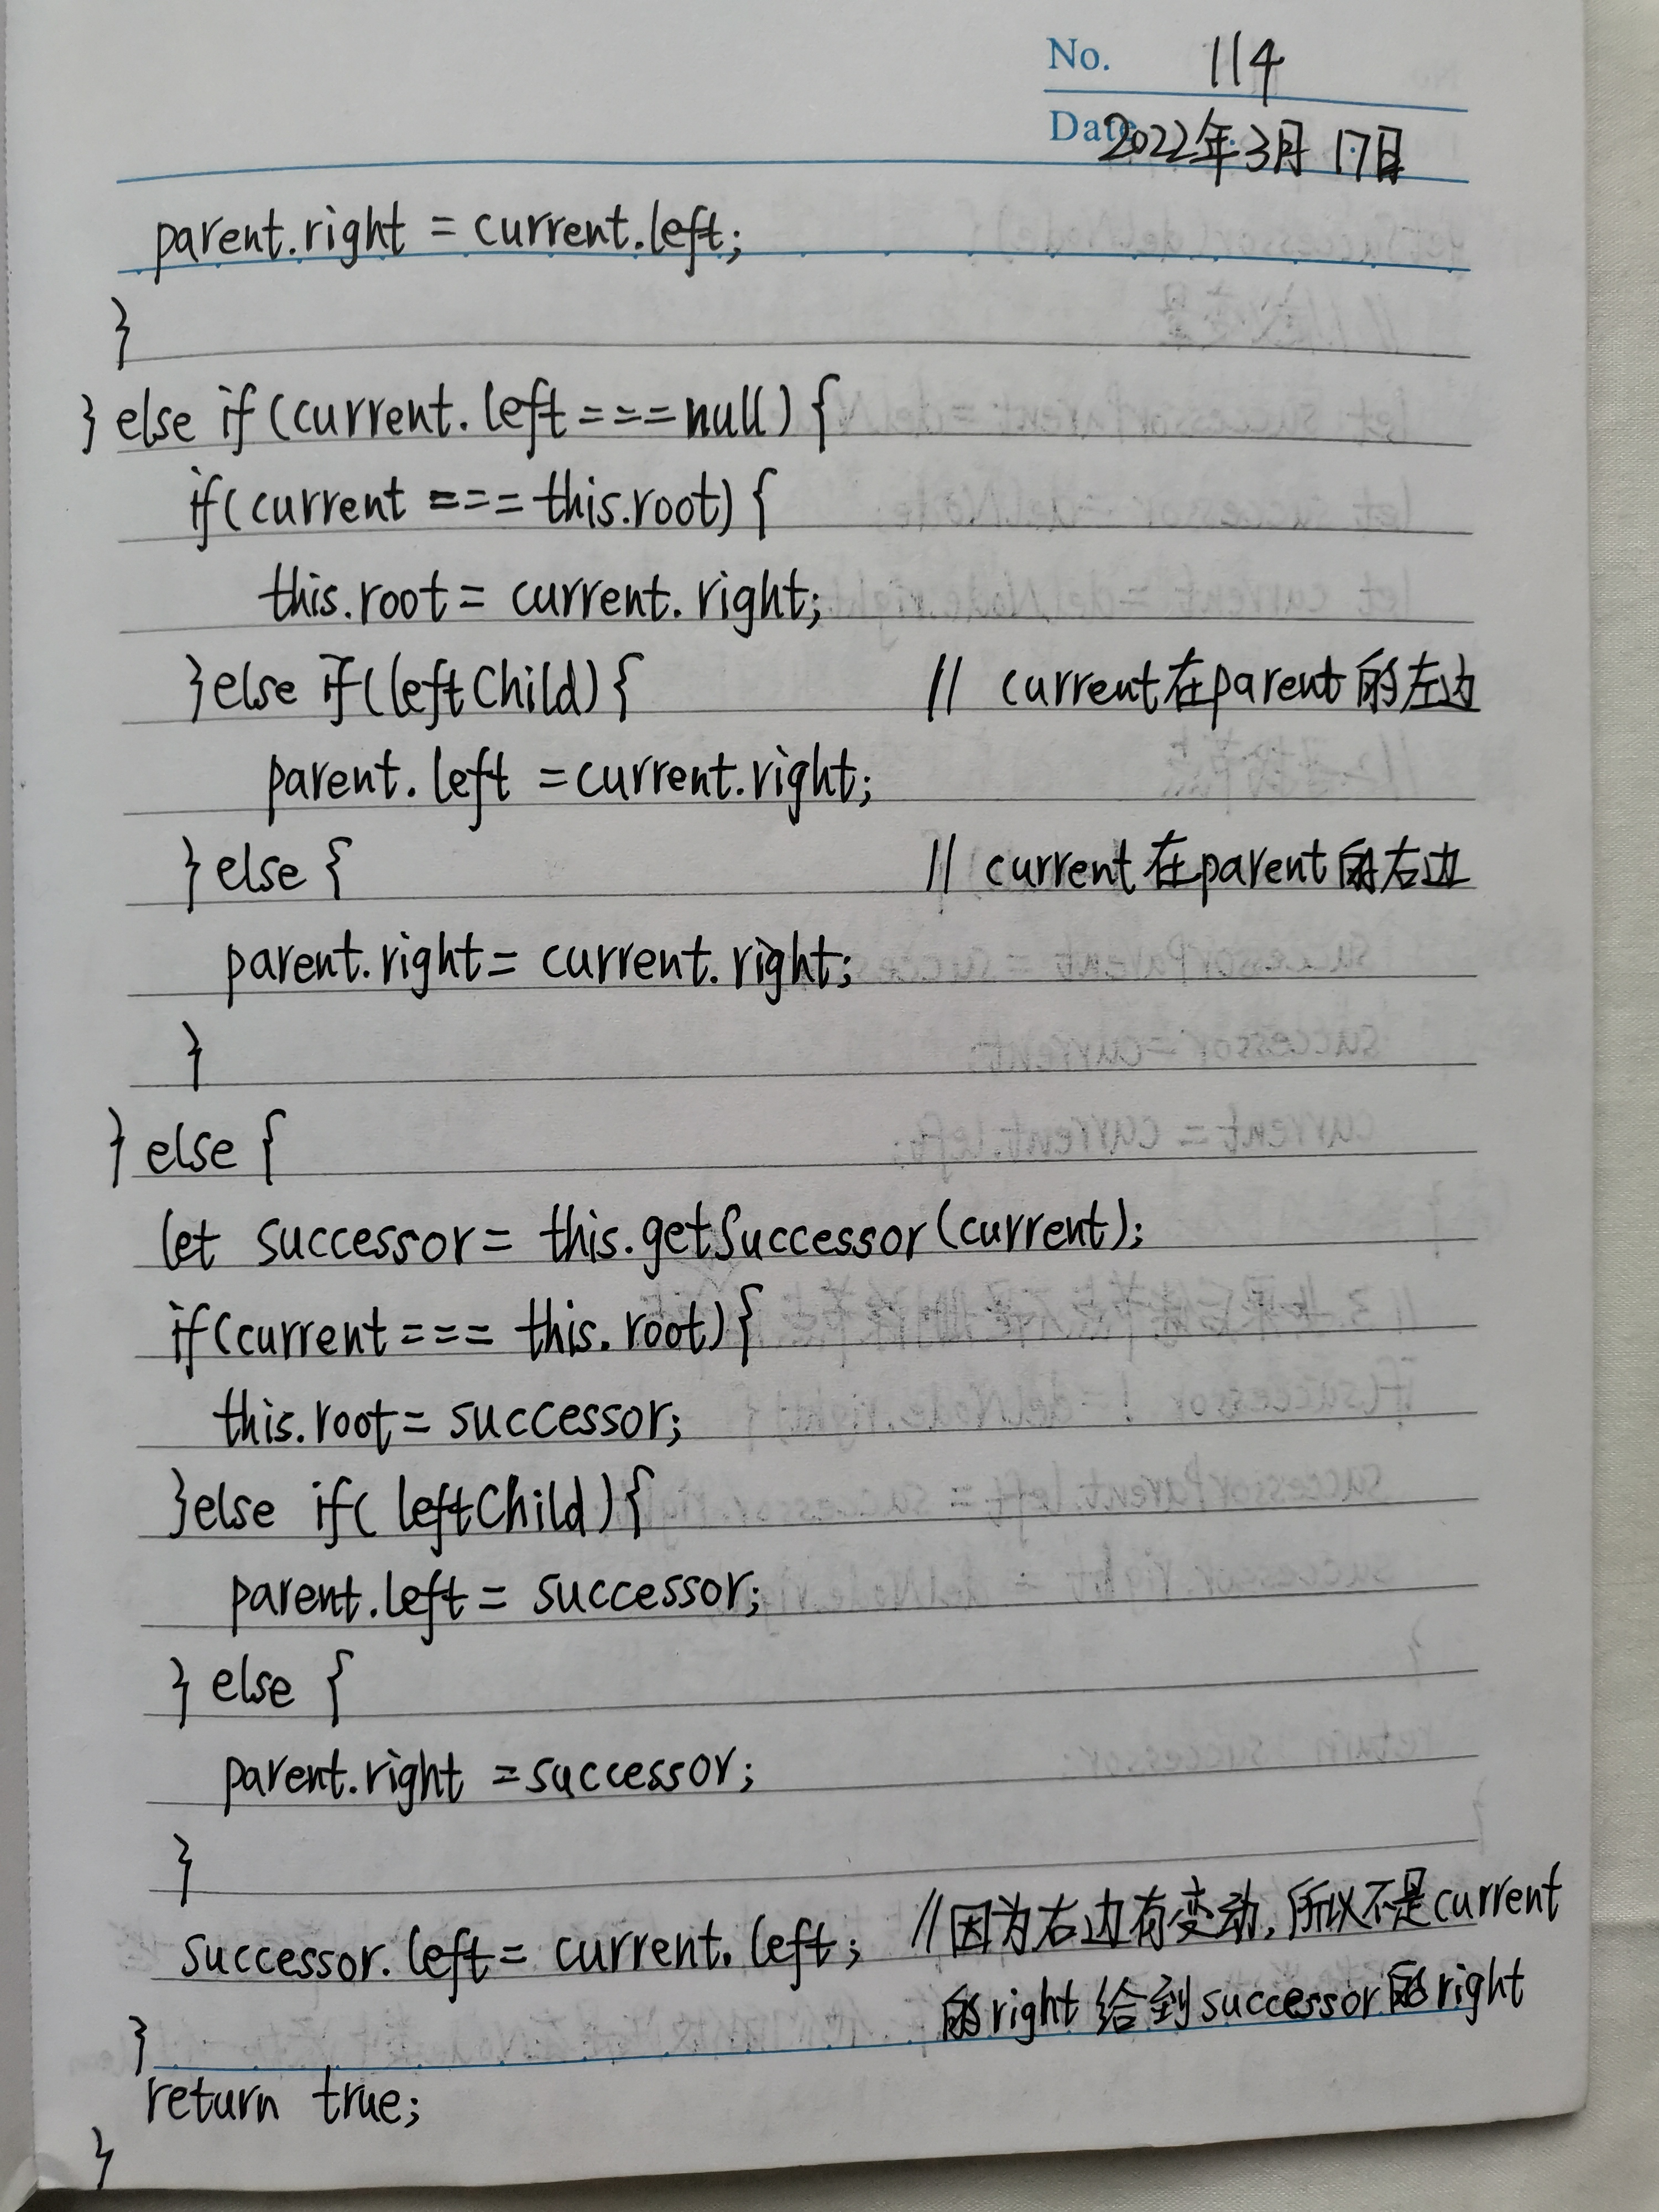 No. 114
Date 2022年3月17日
parent.right = current.left;
}
} else if (current.left === null) {
if (current === this.root) {
this.root = current.right;
} else if (leftChild) { // current在parent的左边
parent.left = current.right;
} else { // current在parent的右边
parent.right = current.right;
}
} else {
let successor = this.getSuccessor(current);
if (current === this.root) {
this.root = successor;
} else if (leftChild) {
parent.left = successor;
} else {
parent.right = successor;
}
successor.left = current.left; //因为右边有变动,所以不是current
的right给到successor的right
}
return true;
}